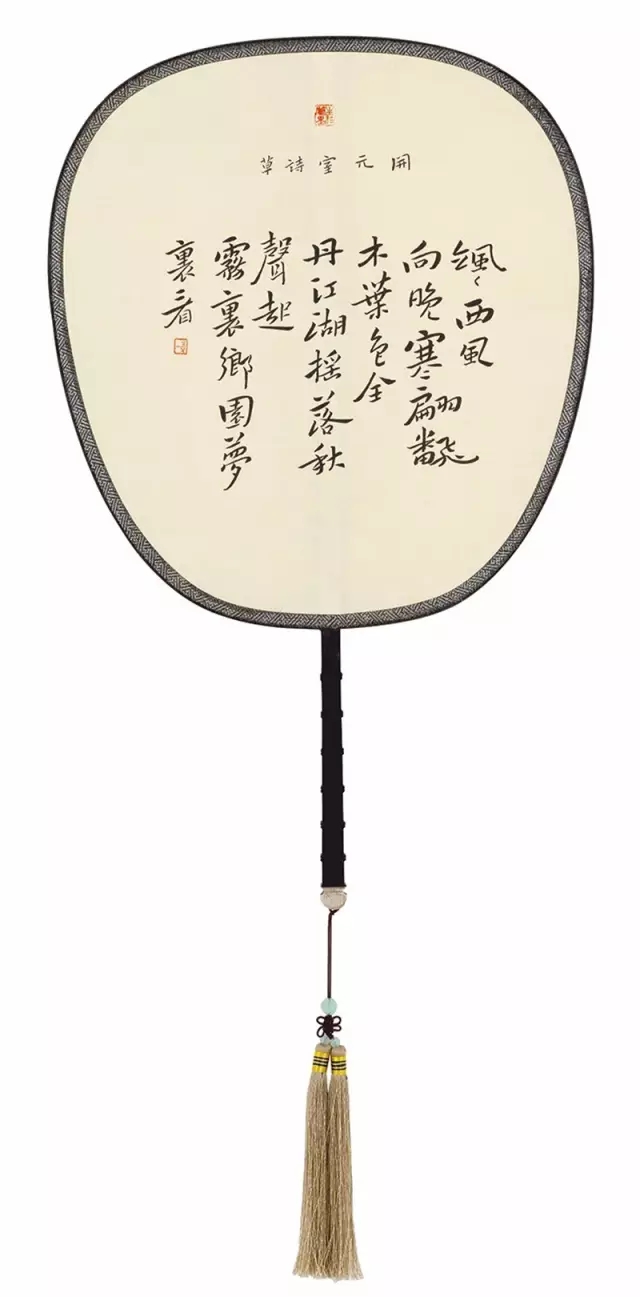 開元室詩草
颯〻西風
向晚寒翩飜
木葉色全
丹江湖摇落秋
聲起
霧裏鄉園夢
裏看